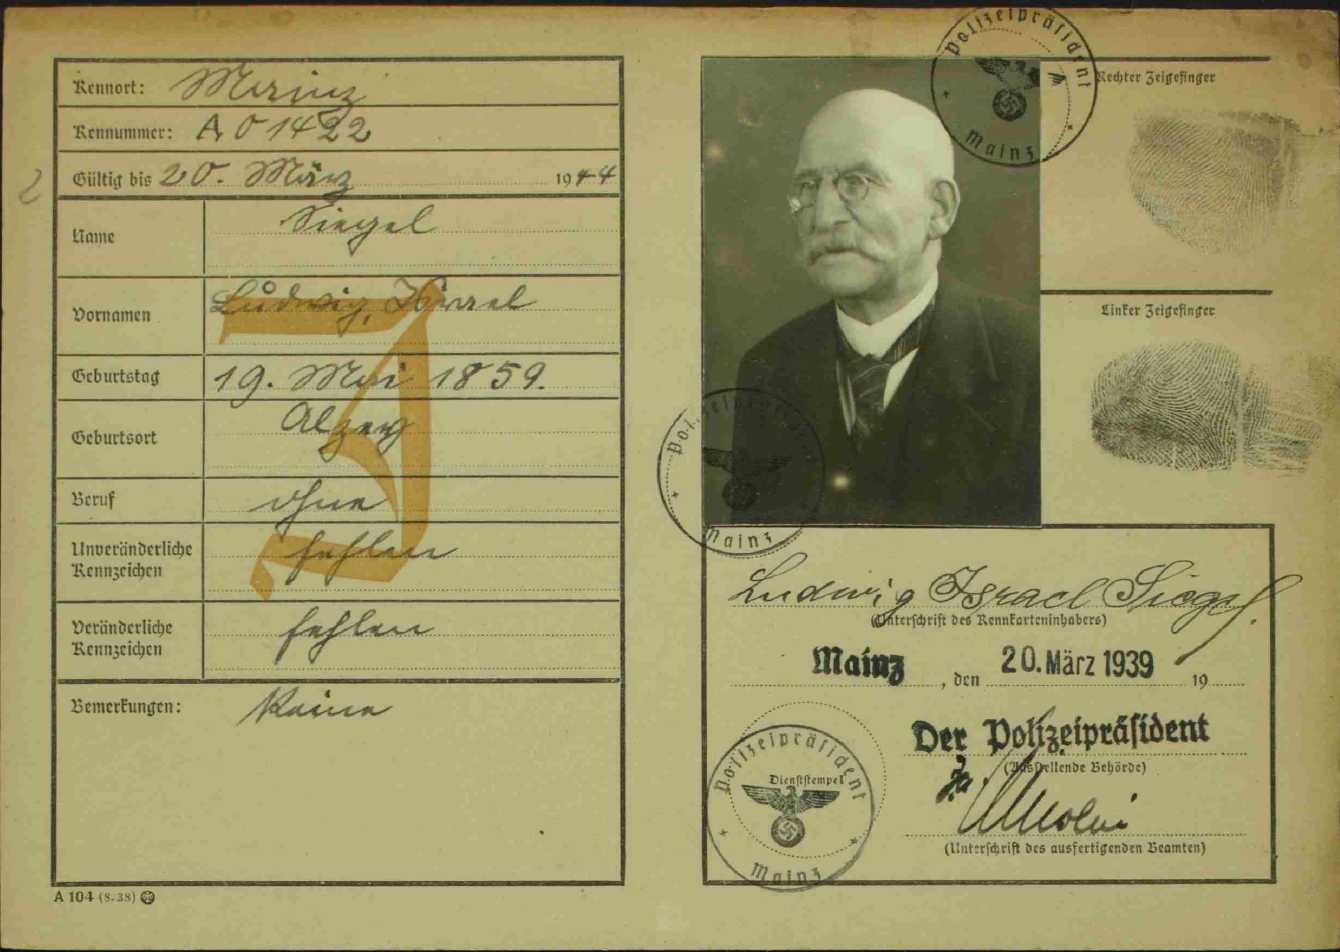 Kennort: Mainz
Kennummer: A 01422
Gültig bis 20. März 1944
Name Siegel
Vornamen Ludwig, Israel
Geburtstag 19. Mai 1859.
Geburtsort Alzey
Beruf ohne
Unveränderliche Kennzeichen fehlen
Veränderliche Kennzeichen fehlen
Bemerkungen: Keine
J
A 104 (8. 38)
2
Polizeipräsident
Mainz
Rechter Zeigefinger
Linker Zeigefinger
Polizeipräsident
Mainz
Ludwig Israel Siegel.
(Unterschrift des Kennkarteninhabers)
Mainz, den 20. März 1939 19
Der Polizeipräsident
(Ausstellende Behörde)
Polizeipräsident
Dienststempel
Mainz
(Unterschrift des ausfertigenden Beamten)